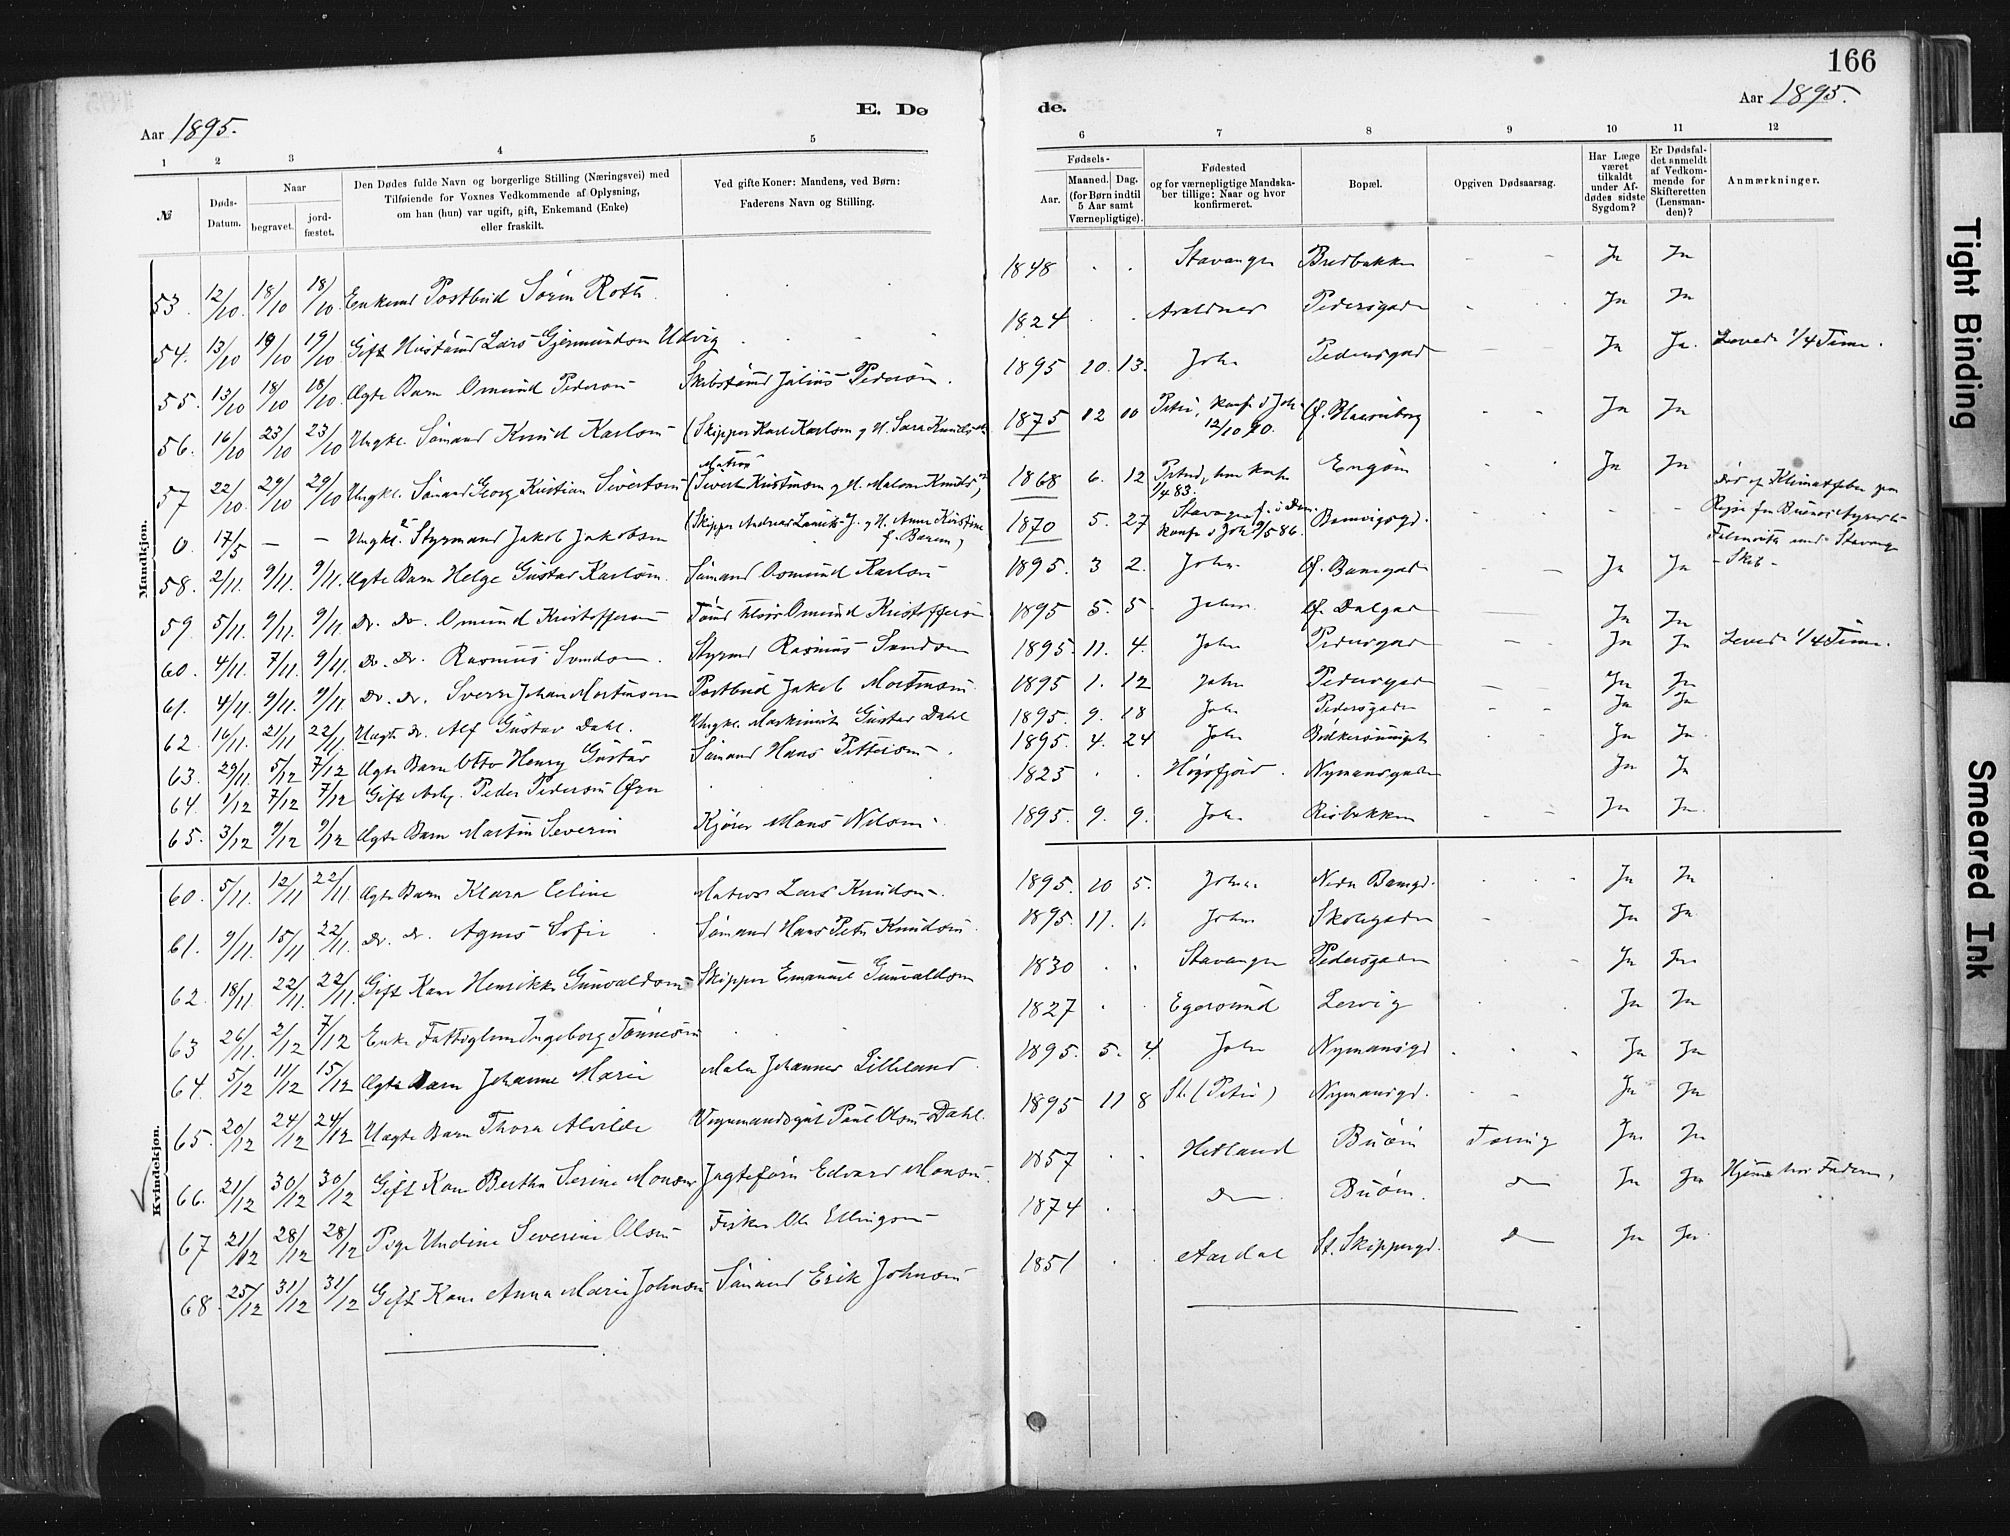 166
Aar 1895.
E. Dø
de.
Aar 1895.
1 2 3 4 5
6 7 8 9 10 11 12
№
Døds-Datum.
Naar
begravet.
jord-fæstet.
Den Dødes fulde Navn og borgerlige Stilling (Næringsvei) med
Tilføiende for Voxnes Vedkommende af Oplysning,
om han (hun) var ugift, gift, Enkemand (Enke)
eller fraskilt.
Ved gifte Koner: Mandens, ved Børn:
Faderens Navn og Stilling.
Fødsels-
Aar.
Maaned. Dag.
(for Børn indtil
5 Aar samt
Værnepligtige).
Fødested
og for værnepligtige Mandska-
ber tillige: Naar og hvor
konfirmeret.
Bopæl.
Opgiven Dødsaarsag.
Har Læge
været
tilkaldt
under Af-
dødes sidste
Sygdom?
Er Dødsfal-
det anmeldt
af Vedkom-
mende for
Skifteretten
(Lensman-
den)?
Anmærkninger.
Mandkjøn.
53. 12/10 18/10 18/10 Enkemd Postbud Sørin Roth 1848 Stavanger Bredbakken Ja Ja
54. 13/10 19/10 19/10 Gift Lars Gjermundsen Udvig 1824 Pedersgaden Ja Ja
55. 13/10 18/10 18/10 Ægte Barn Omund Pedersen Julius Pedersen. 1895 10. 13. Joh. Pedersgad Ja Ja. Levede 1/4 Time.
56. 16/10 23/10 23/10 Ungkl. Sømand Knud Karlsen (Skipper Karl Karlsen og H. Sara 1875 12 10 Petri, konf. i Joh. 12/10 90. Ja Ja
57. 22/10 29/10 29/10 Ungkl. Sømand Georg Kristian Sivertsen (Matros Sivert og H. Malene 1868 6. 12 1/4 83. Engøen Ja Ja
0. 17/5 – – Ungkl. Styrmand Jakob Jakobsen (Skipper Andreas J. og H. Anne Kirstine f. 1870 5. 27 Stavanger konf. i Joh. 86. Død af Klimatfeber paa Reise fra Buenos Ayres Stavanger Skib
58. 2/11. 9/11. 9/11. Ægte Barn Helge Gustav Karlsen. Sømand Osmund Karlsen 1895. 3 2. Joh. Ja Ja
59 5/11. 9/11. 9/11. Do. Do. Omund Kristoffersen Omund Kristoffersen 1895 5. 5. Joh. Dalgad Ja Ja
60. 4/11. 7/11. 9/11. Do. Do. Rasmus Svendsen. Styrmd Rasmus Svendsen 1895. 11. 4. Joh. Pedersgad Ja Ja Levede 1/4 Time.
61. 4/11. 9/11. 9/11. Do. Do. Sverre Johan Mortensen Postbud Jakob Mortensen 1895 1. 12 Joh. Pedersgad Ja Ja
62. 16/11. 21/11 22/11. Uægte do. Alf Gustav Dahl. Ungkl. Maskinist Gustav Dahl 1895. 9. 18 Joh. Pedersgaden Ja Ja
63. 29/11. 5/12 7/12 Ægte Barn Otto Henry Gustav Sømand Hans Pettersen. 1895. 4. 24 Joh. Ja Ja
64. 1/12 7/12 7/12 Gift Arb. Peder Pedersen 1825 Høgsfjord. Nymansgaden Ja Ja
65. 3/12 9/12 9/12 Ægte Barn Martin Severin Kjører Hans Nilsen. 1895. 9. 9. Joh. Risbakken Ja Ja.
Kvindekjøn.
60. 5/11. 12/11 22/11. Ægte Barn Klara Eline Matros Lars Knudsen. 1895. 10 5. Johan Nedre Ja Ja
61. 9/11. 15/11 22/11. Do. Do. Agnes Sofie Sømand Hans Petr Knudsen. 1895. 11. 1. Johan Skolegaden Ja Ja
62. 18/11. 22/11. 22/11. Gift Kone Henrikke Gunvaldsen Skipper Emanuel Gunvaldsen 1830 Stavanger Pedersgaden Ja Ja
63 26/11. 2/12 7/12 Enke Fattiglem Ingeborg Tønnesen 1827 Egersund Lervig Ja Ja
64. 5/12 11/12 15/12 Ægte Barn Johanne Marie Maler Johannes Lilleland 1895. 5. 4. Joh Nymansgd Ja Ja
65. 20/12 24/12 24/12 Uægte Barn Thora Alvilde Vognmandsgut Paul Olsen Dahl. 1895 11 8 St. (Petri) Nymansgd. Ja Ja
66. 21/12 30/12 30/12 Gift Kone Bertha Serine Monsen Jagtefører Edvard Monsen. 1857 Hetland Buøen Tæring Ja Ja
67 21/12 28/12 28/12 Pige Undine Severine Olsen Fisker Ole Ellingsen 1874 Do. Buøen. Do Ja Ja Hjemme hos Faderen.
68. 25/12 31/12 31/12 Gift Kone Anna Marie Johnsen Sømand Erik Johnsen 1851 Aardal St. Skippergd. Do Ja Ja.
Tight Binding
Smeared Ink